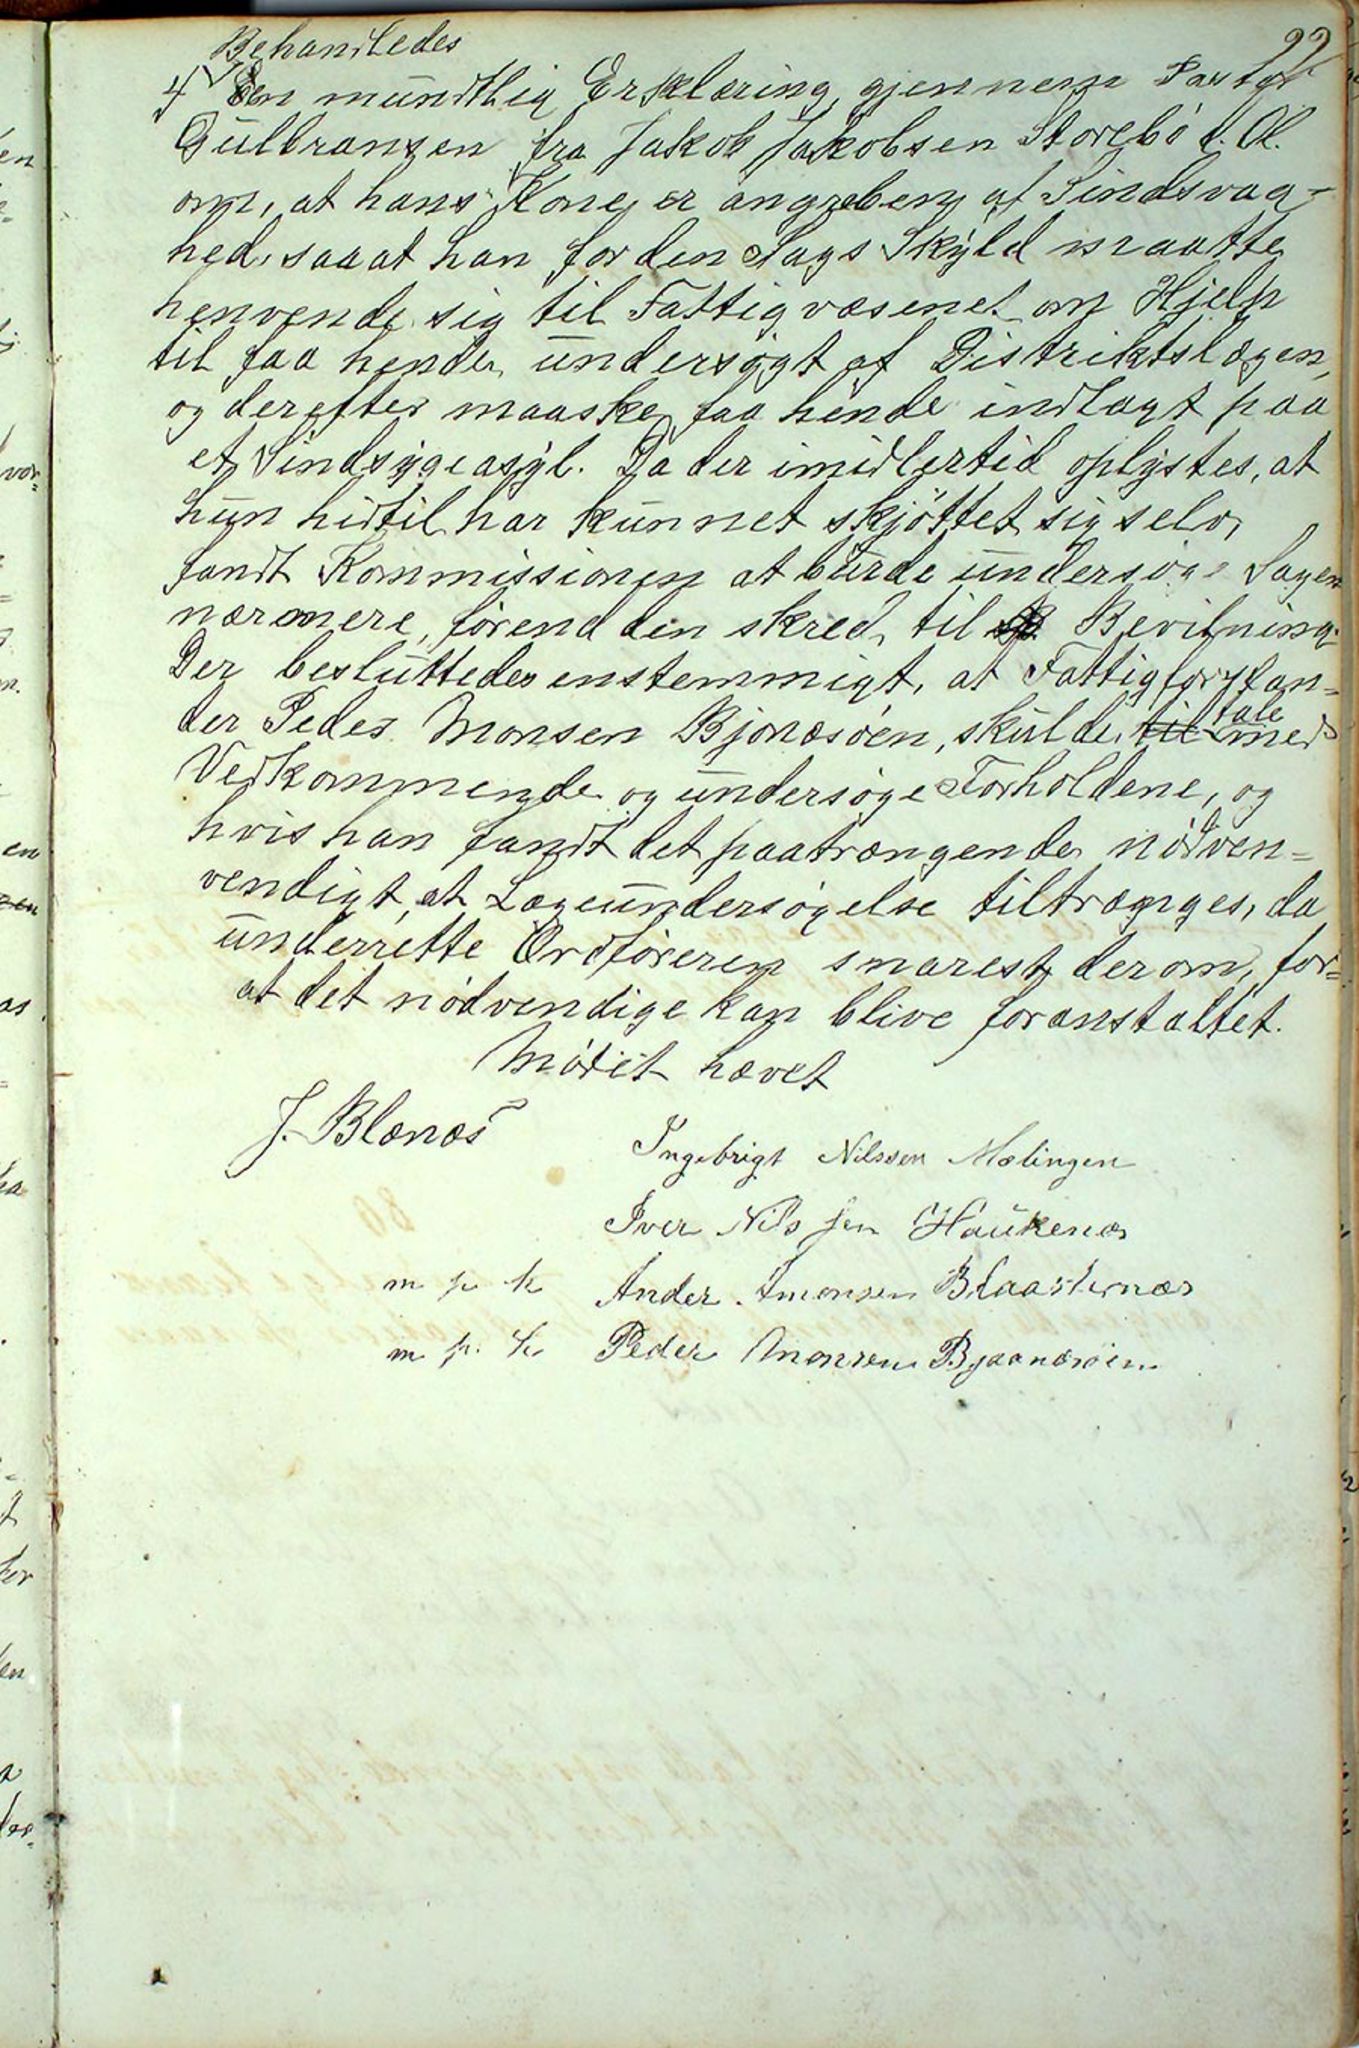 22
Behandledes
4 En mundtlig Erklæring, gjennem Pastor
Gulbransen fra Jakob Jakobsen Storebö d. Æl.
om, at hans Kone er angreben af Sindsvag-
hed, saa at han for den Sags Skyld maatte
henvende sig til Fattigvæsenet om Hjelp
til faa hende undersøgt af Distriktslægen,
og derefter maaske faa hende indlagt paa
et Sindsygeasyl. Da der imidlertid oplystes, at
hun hidtil har kunnet skjöttet sig selv,
fandt Kommissionen at burde undersøge Sagen
nærmere, förend den skred til Bevilning.
Der besluttedes enstemmigt, at Fattigforstan-
der Peder Monsen Bjonæsöen, skulde til tale med
Vedkommende og undersøge Forholdene, og
hvis han fandt det paatrængende nödven=
vendigt, at Lægeundersøgelse tiltrænges, da
underrette Ordföreren snarest derom, for=
at det nödvendige kan blive foranstaltet.
Mödet hævet
J. Blænæs
Ingebrigt Nilssen Mælingen
Iver Nilssen Haukenæs
m p k Anders Amonsen Blaasternæs
m. p. k Peder Monsen Bjaanæsöen